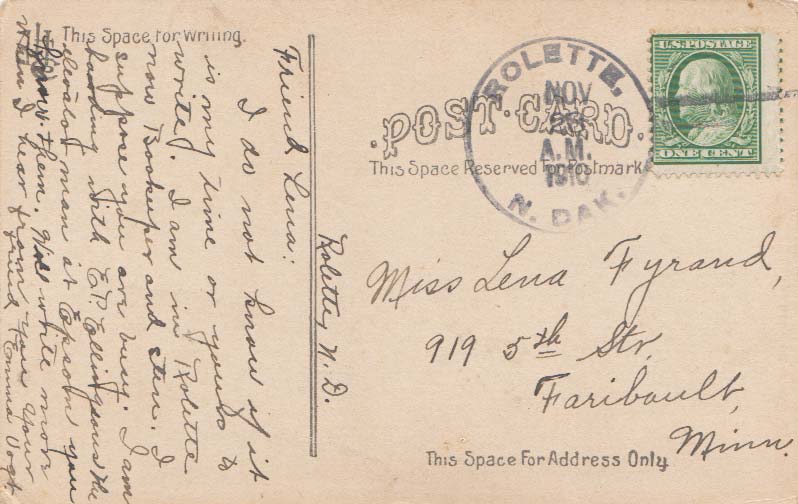 This Space for Writing.
POST CARD.
This Space Reserved for Postmark
ROLETTE,
NOV
A.M.
1910
N. DAK.
U.S. POSTAGE
ONE CENT
Rolette, N.D.
Friend Lena:
I do not know if it
is my time or yours to
write. I am in Rolette
now Bookeeper and Sten. I
suppose you are busy. I am
boarding with E.P. Ellingsons the
elevator man at Epsom you
know them. Will write more
when I hear from you. Your
Friend Emma Vogt
Miss Lena Fyrand,
919 5th Str.
Faribault,
Minn.
This Space For Address Only